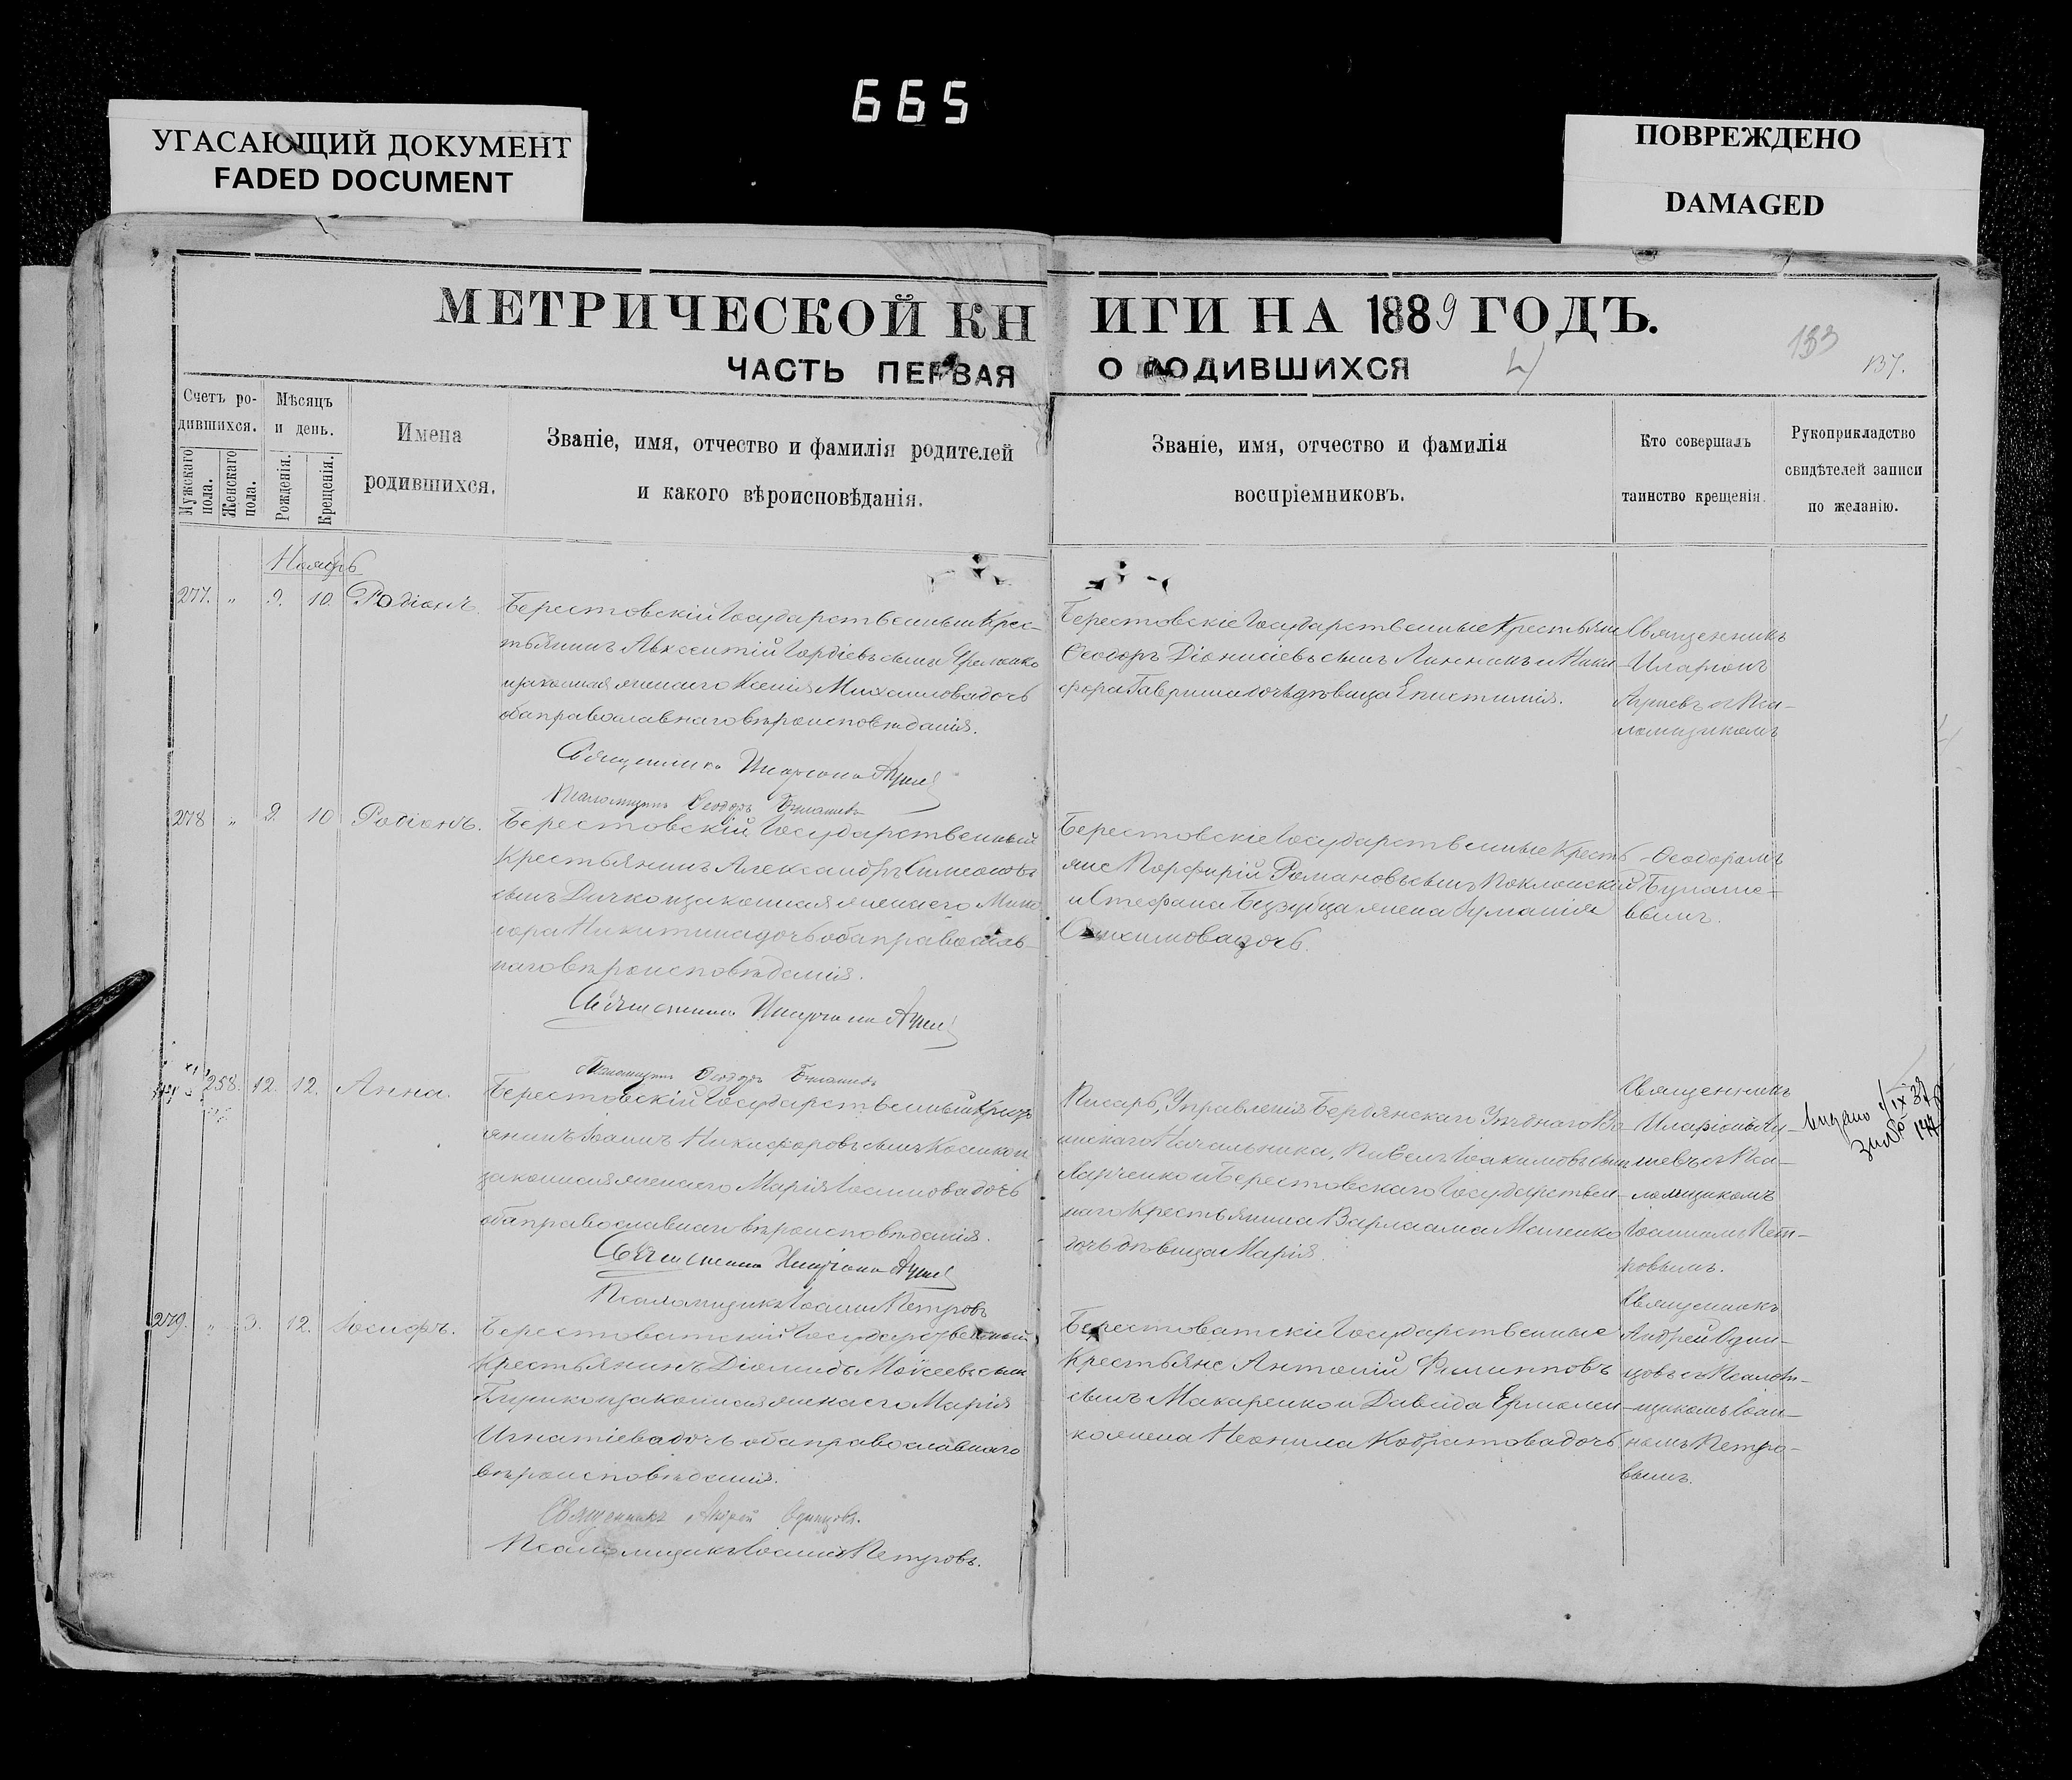 665
УГАСАЮЩИЙ ДОКУМЕНТ
FADED DOCUMENT
ПОВРЕЖДЕНО
DAMAGED
МЕТРИЧЕСКОЙ КНИГИ НА 1889 ГОДЪ.
ЧАСТЬ ПЕРВАЯ О РОДИВШИХСЯ
133
137.
Счетъ родившихся.
Мужскаго пола.
Женскаго пола.
Мѣсяцъ и день.
Рожденія.
Крещенія.
Имена
родившихся.
Званіе, имя, отчество и фамилія родителей
и какого вѣроисповѣданія.
Званіе, имя, отчество и фамилія
воспріемниковъ.
Кто совершалъ
таинство крещенія.
Рукоприкладство
свидѣтелей записи
по желанію.
Ноябрь
277. " 9. 10. Родіонъ.
Берестовскій Государственный Крес-
тьянинъ Авксентій Гордіевъ сынъ
и законная жена его Ксенія Михаилова дочь
оба православнаго вѣроисповѣданія.
Священникъ Иларіонъ
Псаломщикъ Ѳеодоръ
Берестовскіе Государственные Крестьяне
Ѳеодоръ Діонисіевъ сынъ и Ники-
фора Гавриша дочь дѣвица Епистимія.
Священникъ
Иларіонъ
съ Пса-
ломщикомъ
278 " 9. 10 Родіонъ.
Берестовскій Государственный
Крестьянинъ Александръ Симеоновъ
сынъ Дичко и законная жена его Мино-
дора Никитина дочь оба православ-
наго вѣроисповѣданія.
Священникъ Иларіонъ
Псаломщикъ Ѳеодоръ
Берестовскіе Государственные Кресть-
яне Порфирій Романовъ сынъ Поклонскій
и Стефана жена
дочь.
Ѳеодоромъ
258. 12. 12. Анна.
Берестовскій Государственный Крес
янинъ Іоаннъ Никифоровъ сынъ Косенко и
законная жена его Марія Іоаннова дочь
оба православнаго вѣроисповѣданія.
Священникъ Иларіонъ
Псаломщикъ Іоаннъ Петровъ
Писарь, Управленія Бердянскаго Уѣзднаго Во-
инскаго Начальника, Іоакимовъ сынъ
и Берестовскаго Государствен-
наго Крестьянина Варлаама Маненко
дочь дѣвица Марія.
Священникъ
Иларіонъ
съ Пса-
ломщикомъ
Іоанномъ Пет-
ровымъ.
Видано
279. " 3. 12. Іосифъ.
Берестоватскій Государственный
Крестьянинъ Діомидъ Моѵсеевъ сынъ
и законная жена его Марія
Игнатіева дочь оба православнаго
вѣроисповѣданія.
Священникъ Андрей Одинцовъ.
Псаломщикъ Іоаннъ Петровъ.
Берестоватскіе Государственные
Крестьяне Антоній Филипповъ
сынъ Макаренко и Давида Ермолен-
ко жена Неонила Кодратова дочь
Священникъ
Андрей Один-
цовъ съ Псалом-
щикомъ Іоан-
номъ Петро-
вымъ.